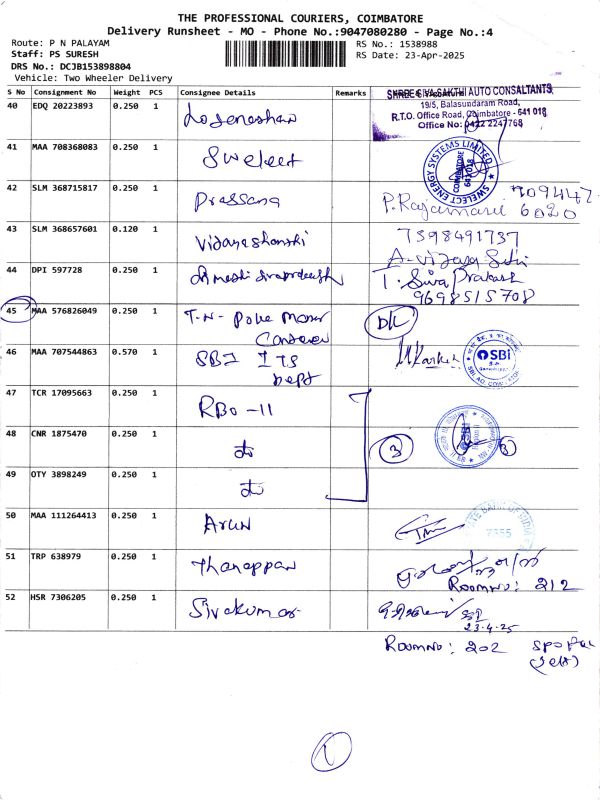 THE PROFESSIONAL COURIERS, COIMBATORE
Delivery Runsheet - MO - Phone No.:9047080280 - Page No.:4
Route: P N PALAYAM
Staff: PS SURESH
DRS No.: DCJB153898804
Vehicle: Two Wheeler Delivery
RS No.: 1538988
RS Date: 23-Apr-2025
S No Consignment No Weight PCS Consignee Details Remarks
SHREE SIVASAKTHI AUTO CONSALTANTS
19/5, Balasundaram Road,
R.T.O. Office Road, Coimbatore - 641 018
Office No: 0422 2247768
40 EDQ 20223893 0.250 1 Logeneshan
41 MAA 708368083 0.250 1 Swelect
SWELECT ENERGY SYSTEMS LIMITED
COIMBATORE
641 018
42 SLM 368715817 0.250 1 Prassana P. Rajamani 709447
6020
43 SLM 368657601 0.120 1 7598491737
44 DPI 597728 0.250 1 T. Siva Prakash
9698515708
45 MAA 576826049 0.250 1 T.N. DK
46 MAA 707544863 0.570 1 SBI ITS
Dept
SBI
47 TCR 17095663 0.250 1 RBO - 11
48 CNR 1875470 0.250 1 do 3
49 OTY 3898249 0.250 1 do
50 MAA 111264413 0.250 1 Arun
STATE BANK OF INDIA
51 TRP 638979 0.250 1 Thanappan
Room No: 212
52 HSR 7306205 0.250 1 Sivakumar
23-4-25
Room No: 202
1